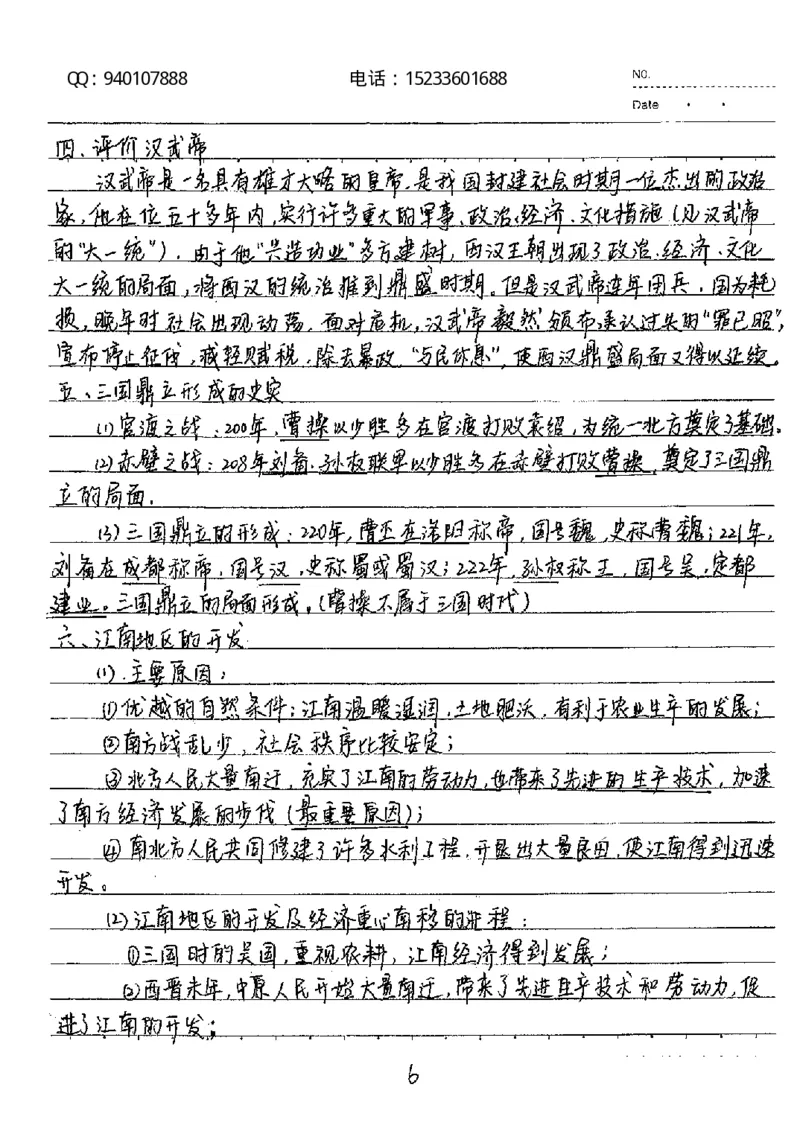 QQ：940107888 电话：15233601688 NO.
Date
四、评价汉武帝
汉武帝是一名具有雄才大略的皇帝，是我国封建社会时期一位杰出的政治
家，他在位五十多年内，实行许多重大的军事、政治、经济、文化措施（见汉武帝
的“大一统”）。由于他“兴造功业”多方建树，西汉王朝出现了政治、经济、文化
大一统的局面，将西汉的统治推到鼎盛时期。但是汉武帝连年用兵，国力耗
损，晚年时社会出现动荡，面对危机，汉武帝毅然颁布承认过失的“罪己昭”，
宣布停止征伐，减轻赋税，除去暴政，“与民休息”，使西汉鼎盛局面又得以延续。
五、三国鼎立形成的史实
(1)官渡之战：200年，曹操以少胜多在官渡打败袁绍，为统一北方奠定了基础。
(2)赤壁之战：208年刘备、孙权联军以少胜多在赤壁打败曹操，奠定了三国鼎
立的局面．
(3)三国鼎立的形成：220年，曹丕在洛阳称帝，国号魏，史称曹魏；221年，
刘备在成都称帝，国号汉，史称蜀或蜀汉；222年，孙权称王，国号吴，定都
建业。三国鼎立的局面形成。（曹操不属于三国时代）
六、江南地区的开发
(1)．主要原因：
①优越的自然条件：江南温暖湿润，土地肥沃，有利于农业生产的发展；
②南方战乱少，社会秩序比较安定；
③北方人民大量南迁，充实了江南的劳动力，也带来了先进的生产技术，加速
了南方经济发展的步伐（最重要原因）；
④南北方人民共同修建了许多水利工程，开垦出大量良田，使江南得到迅速
开发。
(2)江南地区的开发及经济重心南移的进程：
①三国时的吴国，重视农耕，江南经济得到发展；
②西晋末年，中原人民开始大量南迁，带来了先进生产技术和劳动力，促
进了江南的开发；
6